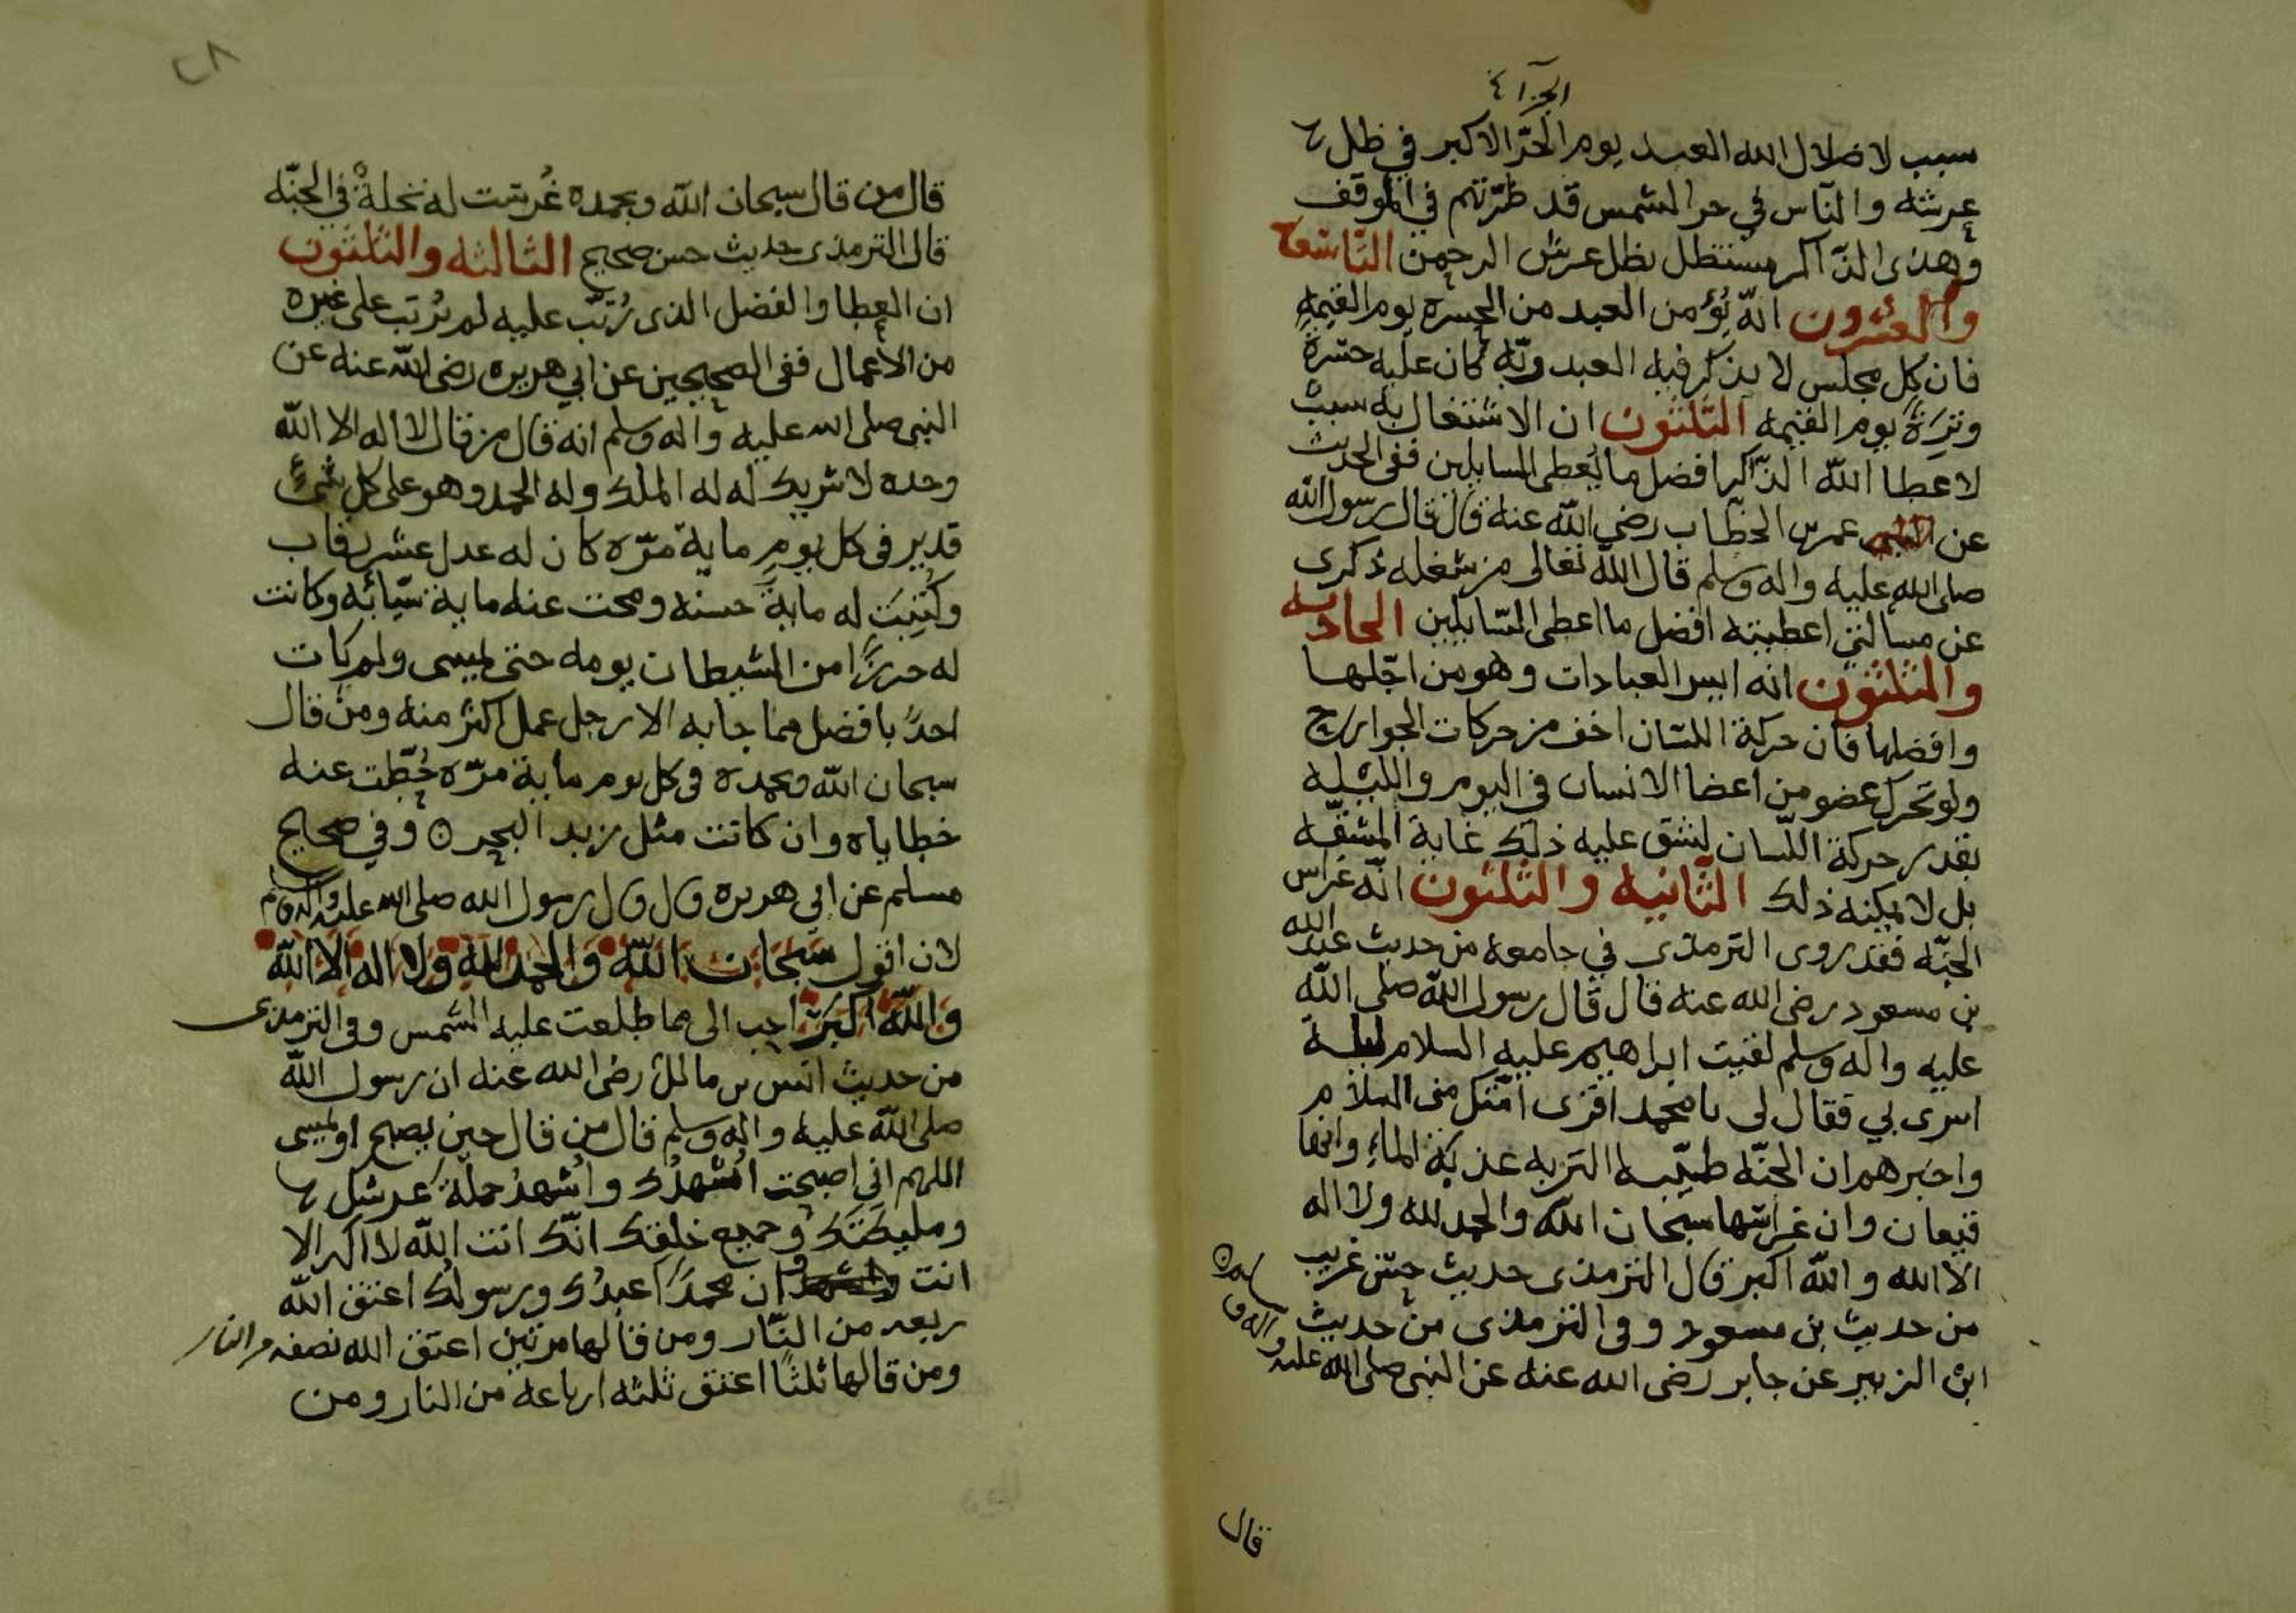 سبب لاضلال الله العبد يوم الحرّ الاكبر في ظل
عرشه والنّاس في حر الشمس قد في الموقف
وهذى الذّاكر مستظل بظل عرش الرحمن التاسعة
والعشرون انّه يُؤمن العبد من الحسرة يوم القيمة
فان كل مجلس لا يذكر فيه العبد ربّه كان عليه حسرة
وتِرَةً يوم القيمه الثلثون ان الاشتغال به سببٌ
لاعطا الله الذّاكر افضل ما يُعطى السايلين ففى الحديث
عن عمر بن الخطاب رضي الله عنه قال قال رسول الله
صلى الله عليه واله وسلم قال الله تعالى من شغله ذكرى
عن مسالتي اعطيته افضل ما اعطى السّايلين الحاديه
والثلثون انه ايسر العبادات وهو من اجّلها
وافضلها فان حركة اللسّان اخف من حركات الجوارح
ولو تحرك عضو من اعضا الانسان في اليوم والليله
بقدر حركة اللّسان لشق عليه ذلك غاية المشقّه
بل لا يمكنه ذلك الثّانيه والثلثون انّه غراس
الجنّه فقد روى الترمذى في جامعه من حديث عبد الله
بن مسعود رضى الله عنه قال قال رسول الله صلى الله
عليه واله وسلم لقيت ابراهيم عليه السلام ليلة
اسرى بي فقال لى يا محمد اقرى امّتك منى السلام
واخبرهم ان الجنّه طيّبة التربه عذبة الماءِ وانها
قيعان وان غراسها سبحان الله والحمد لله ولا اله
الا الله والله اكبر قال الترمذى حديث حسن غريب
من حديث بن مسعود وفى الترمذى من حديث
ابن الزبير عن جابر رضى الله عنه عن النبى صلى الله عليه واله و
قال
٢٨
قال من قال سبحان الله وبحمده غُرست له نخلةٌ في الجنّه
قال الترمذى حديث حسن صحيح الثالثه والثلثون
ان العطا والفضل الذى رُتّب عليه لم يُرتب على غيره
من الاعمال ففى الصحيحين عن ابي هريره رضى الله عنه عن
النبى صلى الله عليه واله وسلم انه قال من قال لا اله الا الله
وحده لا شريك له له الملك وله الحمد وهو على كل شئ
قدير فى كل يوم ماية مرّه كان له عدل عشر رقاب
وكُتِبَت له مايةَ حسنه ومحت عنه ماية سيّائه وكانت
له حرزًا من الشيطان يومه حتى يمسى ولم يات
احدٌ بافضل مما جا به الا رجل عمل اكثر منه ومن قال
سبحان الله وبحمده فى كل يوم ماية مرّه حُطّت عنه
خطاياه وان كانت مثل زبد البحر ٥ وفي صحيح
مسلم عن ابي هريره قال قال رسول الله صلى الله عليه واله وسلم
لان اقول سبحان الله والحمد لله ولا اله الا الله
والله اكبر احب الى مما طلعت عليه الشمس وفى الترمذى
من حديث انس بن مالك رضى الله عنه ان رسول الله
صلى الله عليه واله وسلم قال من قال حين يصبح او يمسى
اللهم اني اصبحت اُشهدُك واُشهدُ حملة عرشك
ومليكتك وجميع خلقك انّك انت الله لا اله الا
انت وان محمدًا عبدُك ورسولك اعتق الله
ربعه من النّار ومن قالها مرتين اعتق الله نصفه من النار
ومن قالها ثلثًا اعتق ثلثه ارباعه من النار ومن